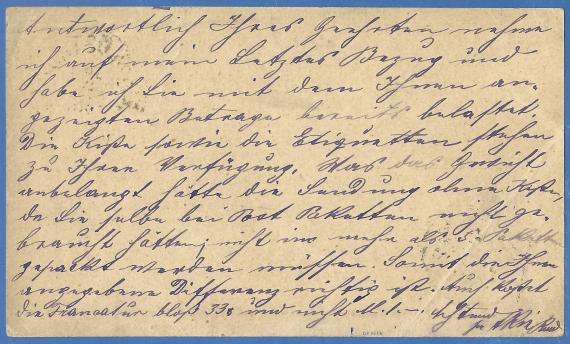 Antwortlich Ihres Geehrten nehme
ich auf mein Letztes Bezug und
habe ich Sie mit dem Ihnen an-
gezeigten Betrage bereits belastet.
Die Kiste sowie die Etiquetten stehen
zu Ihrer Verfügung. Was das Gewicht
anbelangt hätte die Sendung ohne
da Sie selbe bei Post Paketten nicht ge-
braucht hätten; nicht in mehr als 5 Paketten
gepackt werden müssen. Somit die Ihnen
angegebene Differenz richtig ist. Auch kostet
die Francatur bloß 33 und nicht M. 1.-.